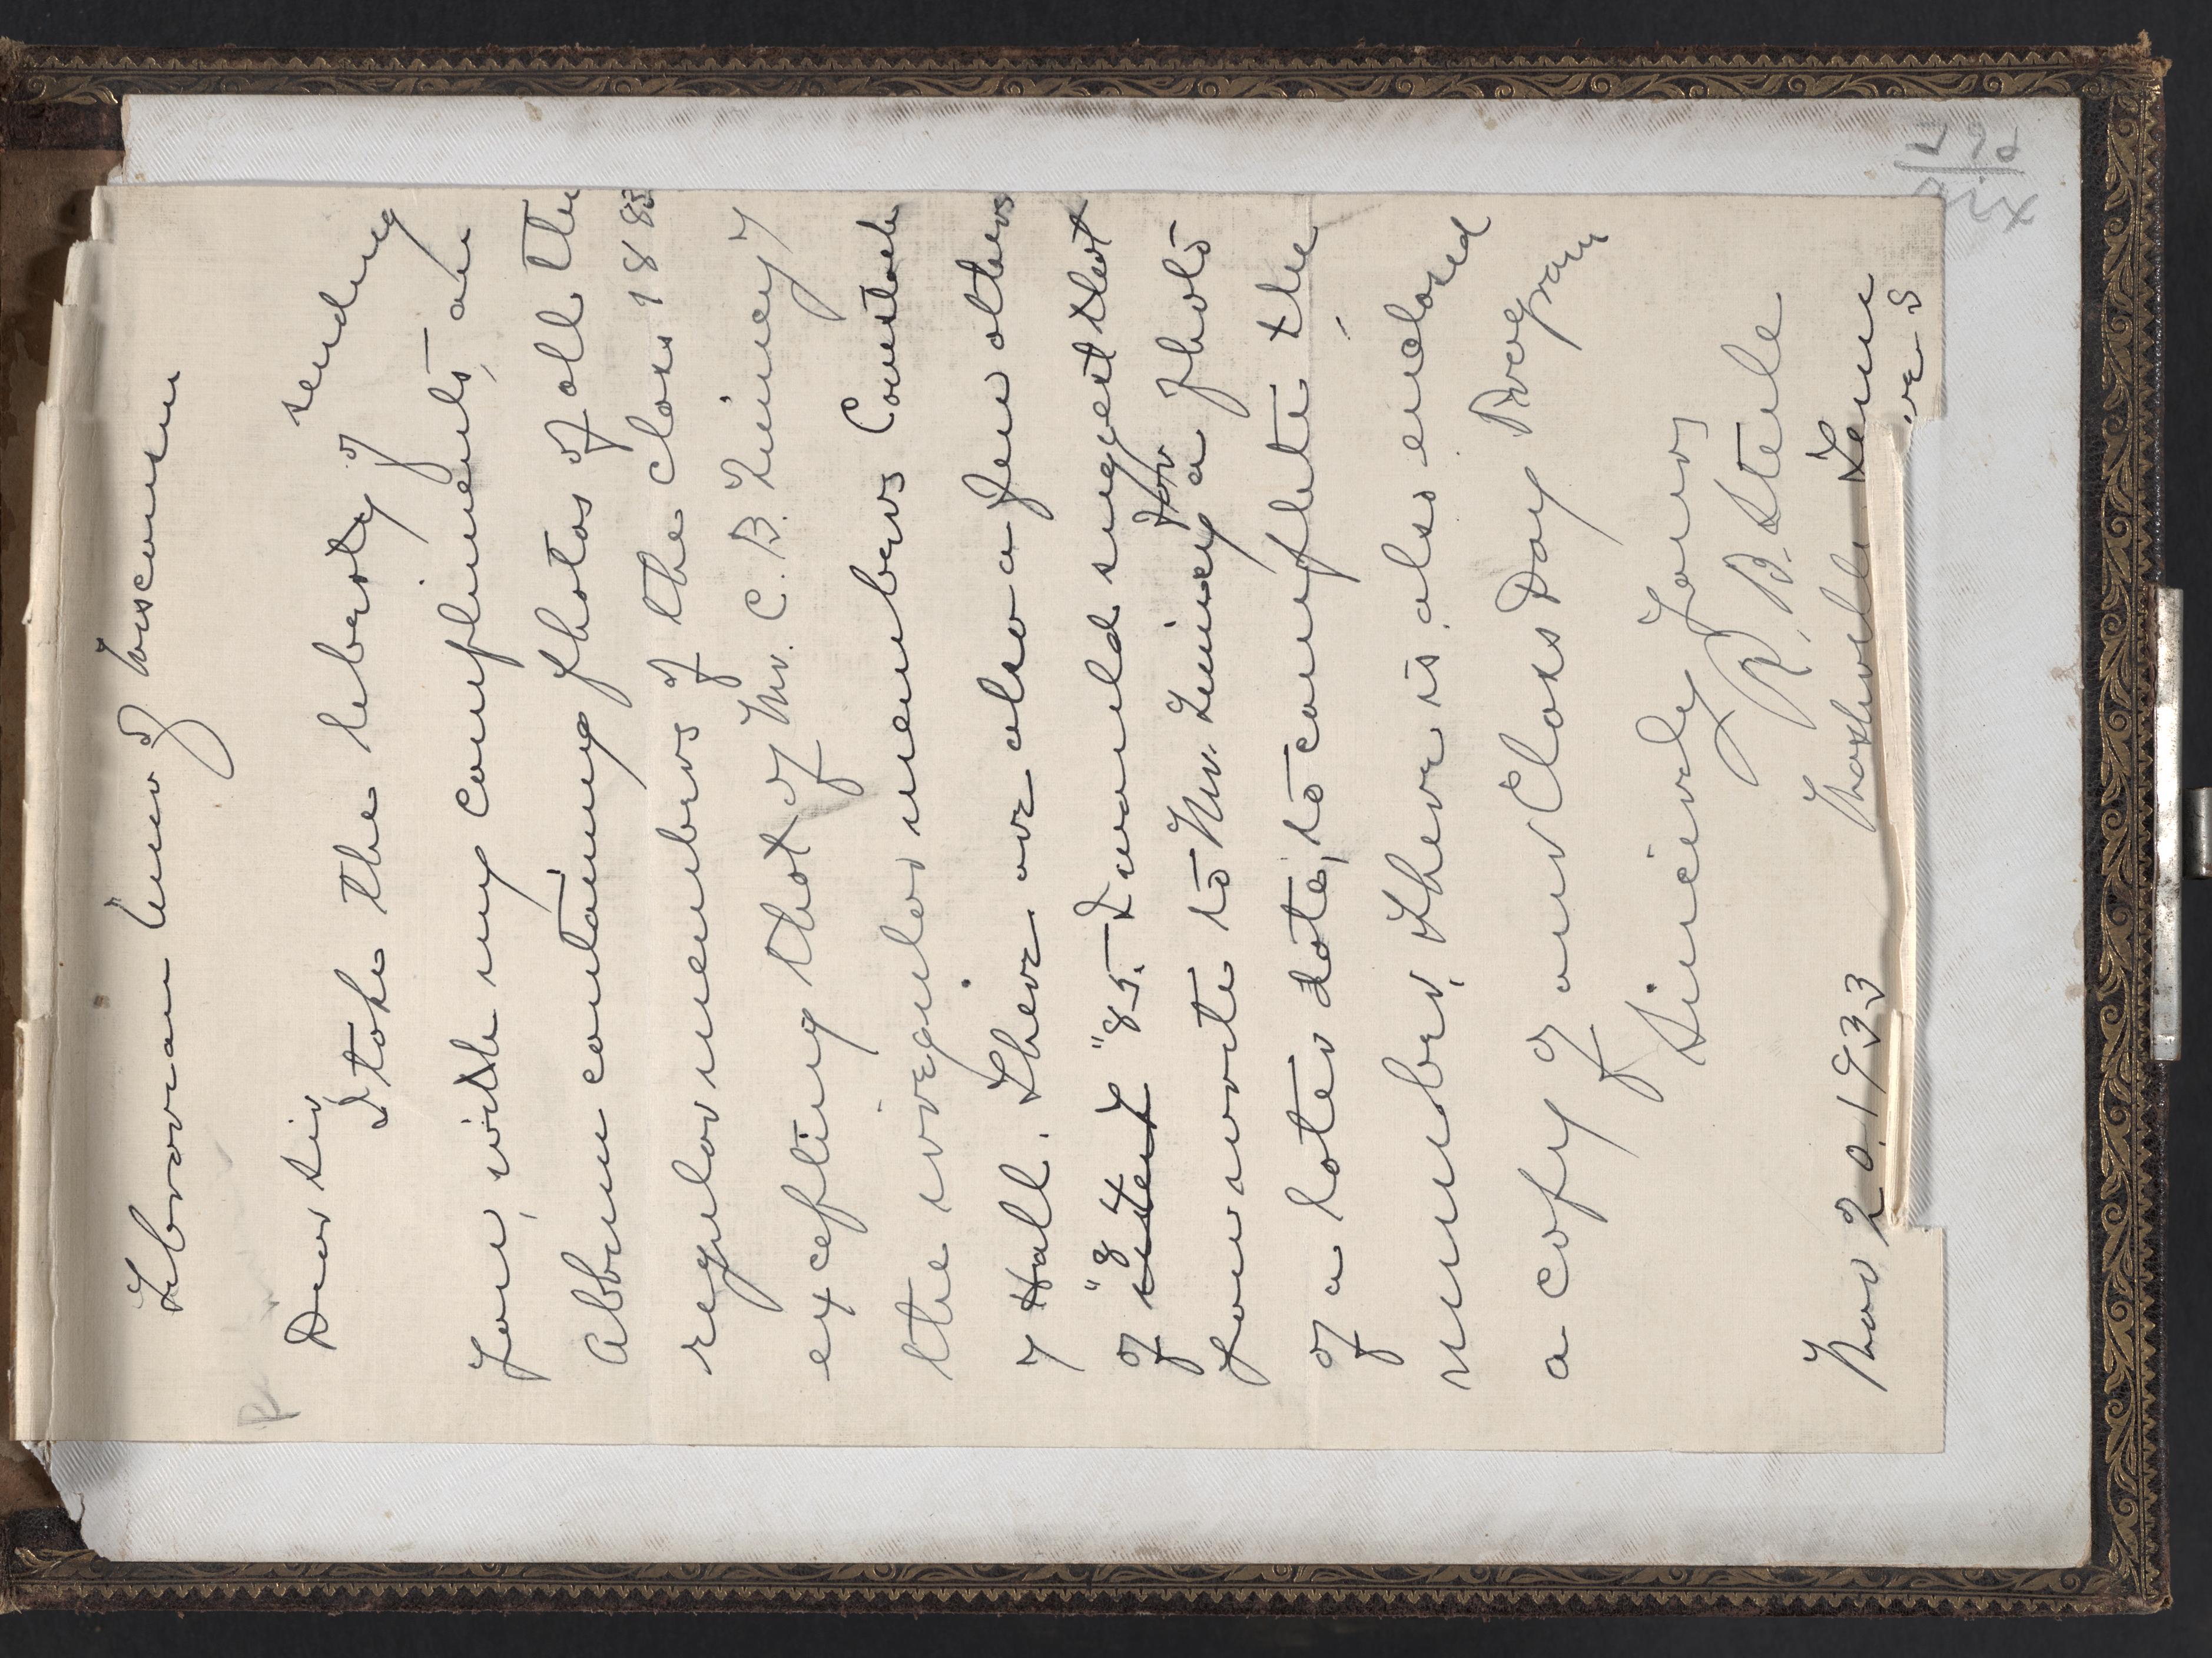 Librarian Univ of Tennessee
Dear Sir
I take the liberty of sending
you, with my compliments, an
Album containing photos of all the
regular members of the class 1883
excepting that of Mr. C. B. Kinney &
the irregular members Comstock
& Hall. There are also a few others
of "84 & "85. I would sugest that
you write to Mr. Kinney for a photo
of a later date, to complete the
number, there is also enclosed
a copy of our Class Day Program
Sincerely Yours
R. B. Steele
Nov 20 1933 Nashville Tenn